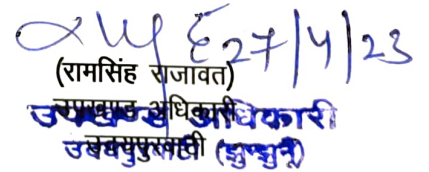 27/4/23
(रामसिंह राजावत)
उपखण्ड अधिकारी
उपखण्ड अधिकारी
उदयपुरवाटी (झुन्झुनू)